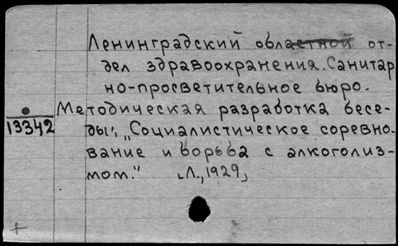 Ленинградский областной от-
дел здравоохранения. Санитар
но-просветительное бюро.
Методическая разработка бесе-
13342
ды: „Социалистическое соревно-
вание и борьба с алкоголиз-
мом." Л., 1929,
+